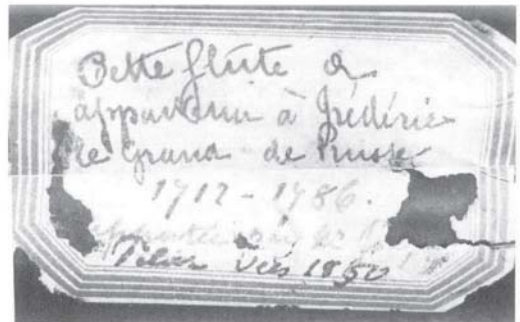 Cette flûte a
appartenu à Frédéric
le Grand de Prusse
1712 - 1786.
vers 1850